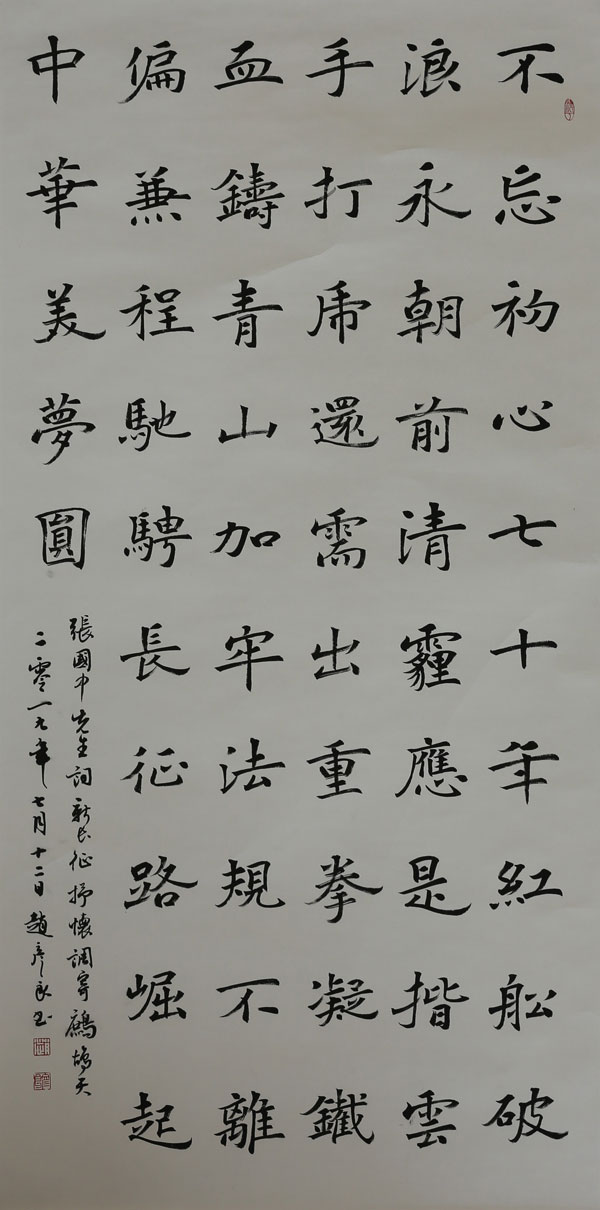 不忘初心七十年紅船破
浪永朝前清霾應是揩雲
手打虎還需出重拳凝鐵
血鑄青山加牢法規不離
偏兼程馳騁長征路崛起
中華美夢圓
張國中先生詞新長征抒懷調寄鷓鴣天
二零一九年七月十二日趙彥良书